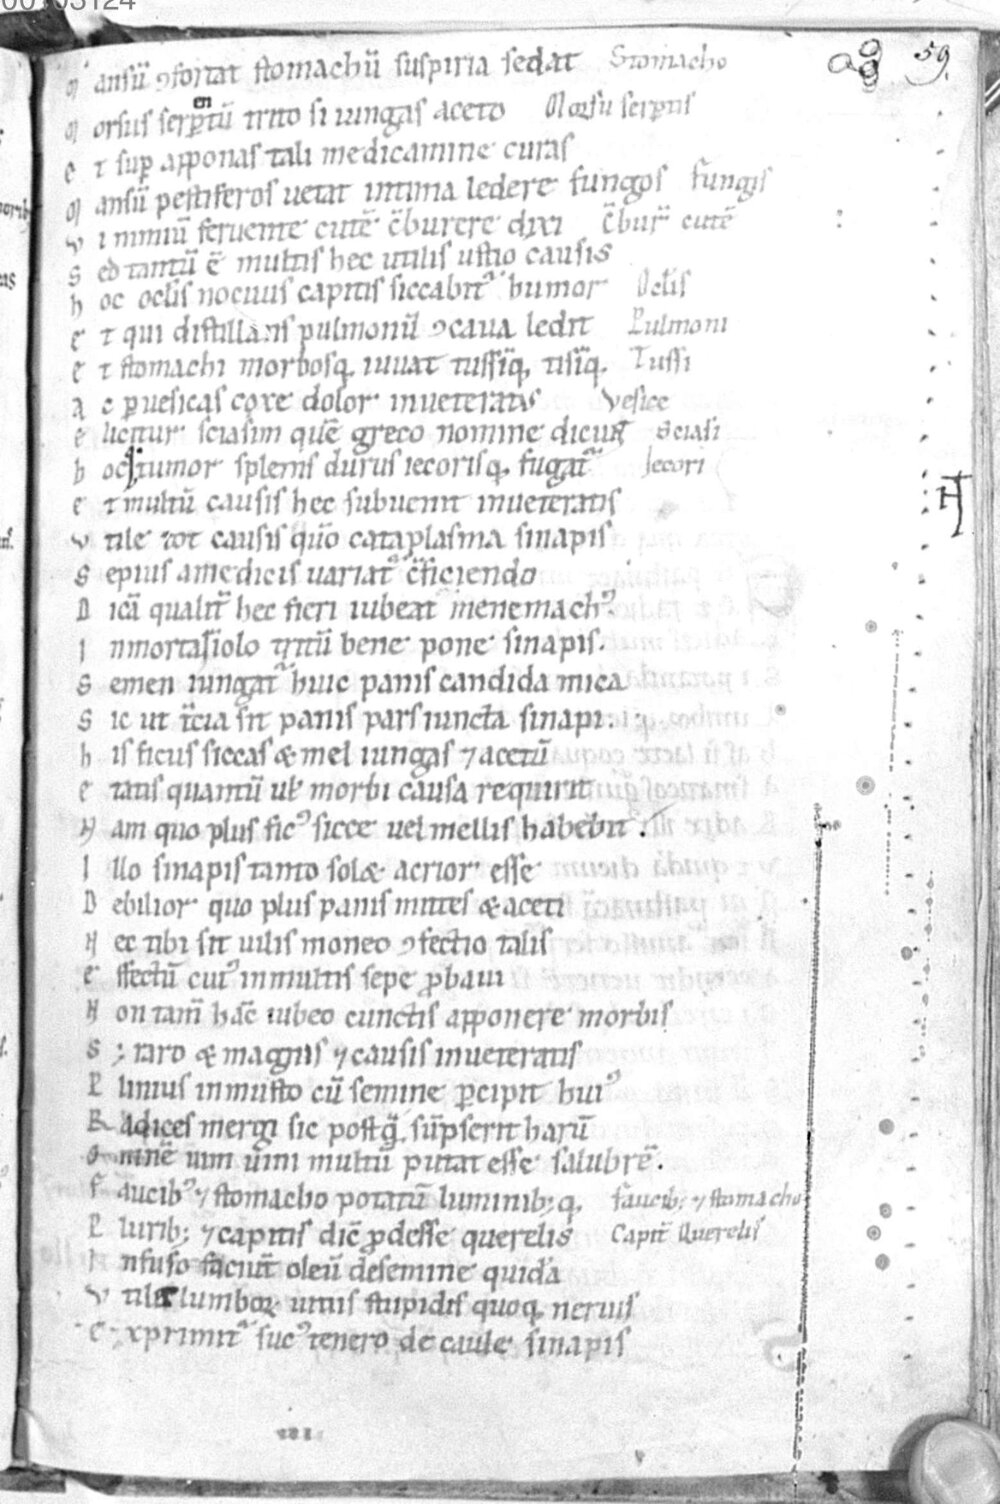 00103124
59.
M ansũ ꝯfortat stomachũ suspiria sedat Stomacho
M orsus serpẽtũ trito si iungas aceto Morsu serpentis
e t suꝑ apponas tali medicamine curas
M ansũ pestiferos uetat intima ledere fungos fungis
v i nimiũ feruente cutẽ c̃burere dixi c̃bur̃ cutẽ
s ed tantũ ẽ multis hec utilis ustio causis
h oc ocl̃is nocuus capitis siccabit᷑ humor Ocl̃is
e t qui distillans pulmonũ ꝯcaua ledit Pulmoni
e t stomachi morbosq, iuuat tussiq̃, tisiq̃, Tussi
a c ꝑ uesicas coxe dolor inueteratus vesice
e licitur sciasim quẽ greco nomine dicunt sciasi
h oc tumor splenis durus iecorisq, fugat᷑ Jecori
e t multũ causis hec subuenit inueteratis
v tile tot causis quõ cataplasma sinapis
S epius a medicis uariat᷑ c̃ficiendo
D icã qualit̃ hec fieri iubeat menemachꝰ
I n mortariolo tritũ bene pone sinapis.
S emen iungat᷑ huic panis candida mica
S ic ut t̃cia sit panis pars iuncta sinapi.
h is ficus siccas & mel iungas ⁊ acetũ
e tatis quantũ uł morbi causa requirit
N am quo plus ficꝰ sicce uel mellis habebit.
I llo sinapis tanto solet acrior esse
D ebilior quo plus panis mittes & aceti
N ec tibi sit uilis moneo ꝯfectio talis
e ffectũ cuiꝰ in multis sepe ꝓbaui
N on tam̃ hãc iubeo cunctis apponere morbis
S ; raro & magnis ⁊ causis inueteratis
P linius in musto cũ semine ꝑcipit huiꝰ
R adices mergi sic postq̃, sũpserit harũ
O mnẽ uim uini multũ putat esse salubrẽ.
f aucibꝰ ⁊ stomacho potatũ luminib; q, faucib; ⁊ stomacho
P lurib; ⁊ capitis dic̃ ꝓdesse querelis Capit̃ Querelis
I nfuso faciũt oleũ de semine quidã
v tile lumboꝝ uitiis stupidis quoq, neruis
e xprimit᷑ sucꝰ tenero de caule sinapis